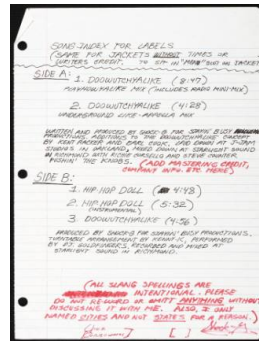 SONG INDEX FOR LABELS
(SAME FOR JACKETS WITHOUT TIMES OR
WRITERS CREDIT, TO ON JACKET
SIDE A: 1. DOOWUTCHYALIKE (8:47)
MIX (INCLUDES RADIO MINI-MIX)
2. DOOWUTCHYALIKE (4:28)
UNDERGROUND LIKE-APPELLA MIX
WRITTEN AND PRODUCED BY SHOCK-G FOR STAYIN' BUSY
PRODUCTIONS. ADDITIONS TO THE DOOWUTCHYALIKE CONCEPT
BY KENT RACKER AND EARL COOK. LAID DOWN AT J-JAM
STUDIOS IN OAKLAND, MIXED DOWN AT STARLIGHT SOUND
IN RICHMOND WITH RICHIE AND STEVE COUNTER
PUSHIN' THE KNOBS. (ADD MASTERING CREDIT,
COMPANY INFO. ETC. HERE)
SIDE B:
1. HIP HOP DOLL 4:43)
2. HIP HOP DOLL (5:32)
(INSTRUMENTAL)
3. DOOWUTCHYALIKE (4:56)
PRODUCED BY SHOCK-G FOR STAYIN' BUSY PRODUCTIONS.
TURNTABLE ARRANGEMENT BY KENNY K, PERFORMED
BY D.J. GOLDFINGERS. RECORDED AND MIXED AT
STARLIGHT SOUND IN RICHMOND.
(ALL SLANG SPELLINGS ARE
INTENTIONAL. PLEASE
DO NOT REWORD OR OMITT ANYTHING WITHOUT
DISCUSSING IT WITH ME. ALSO, I ONLY
NAMED CITIES AND NOT STATES FOR A REASON.)
[ ]